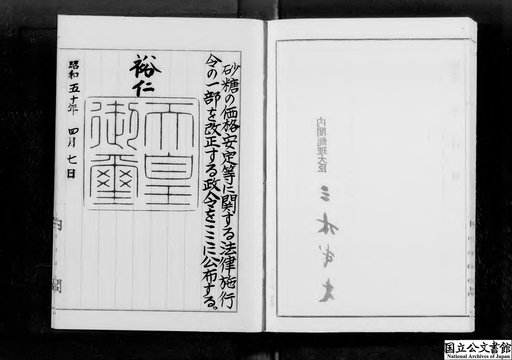 砂糖の価格安定等に関する法律施行
令の一部を改正する政令をここに公布する。
裕仁
天皇
御璽
昭和五十年 四月七日
内閣総理大臣
三木武夫
国立公文書館
National Archives of Japan